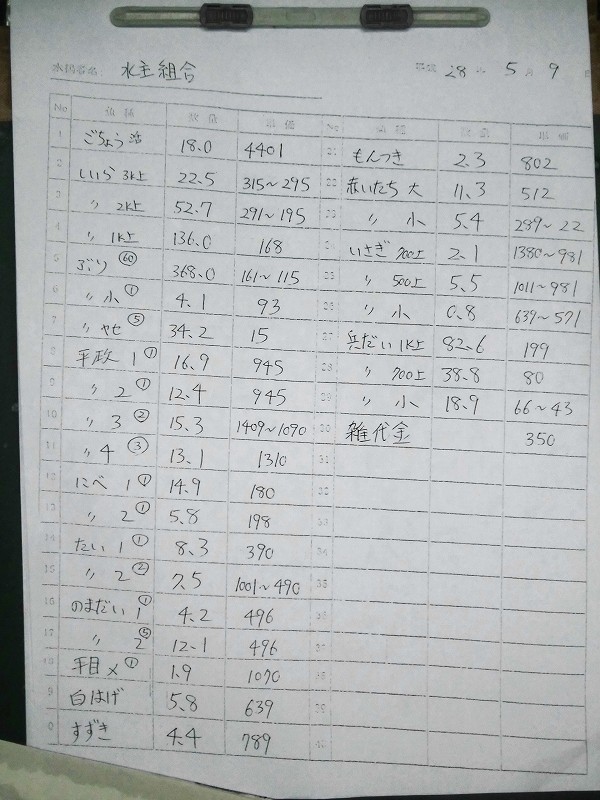 水主組合
28年 5月 9
No 魚種 数量 単価
1 ごちょう 活 18.0 4401
2 しいら 3K上 22.5 315~295
3 〃 2K上 52.7 291~195
4 〃 1K上 136.0 168
5 ぶり 60 368.0 161~115
6 〃 小 ① 4.1 93
7 〃 ヤセ ⑤ 34.2 15
8 平政 1 ① 16.9 945
9 〃 2 ① 12.4 945
10 〃 3 ② 15.3 1409~1090
11 〃 4 ③ 13.1 1310
12 にべ 1 ① 14.9 180
13 〃 2 ① 5.8 198
14 たい 1 ① 8.3 390
15 〃 2 ② 7.5 1001~490
16 のまだい 1 ① 4.2 496
17 〃 2 ⑤ 12.1 496
18 平目 メ ① 1.9 1070
9 白はげ 5.8 639
0 すずき 4.4 789
No 魚種 数量 単価
21 もんつき 2.3 802
22 赤いたち 大 11.3 512
23 〃 小 5.4 289~22
24 いさぎ 700上 2.1 1380~981
25 〃 500上 5.5 1011~981
26 〃 小 0.8 639~571
27 兵だい 1K上 82.6 199
28 〃 700上 38.8 80
29 〃 小 18.9 66~43
30 雑代金 350
31
32
33
34
35
36
37
38
39
40